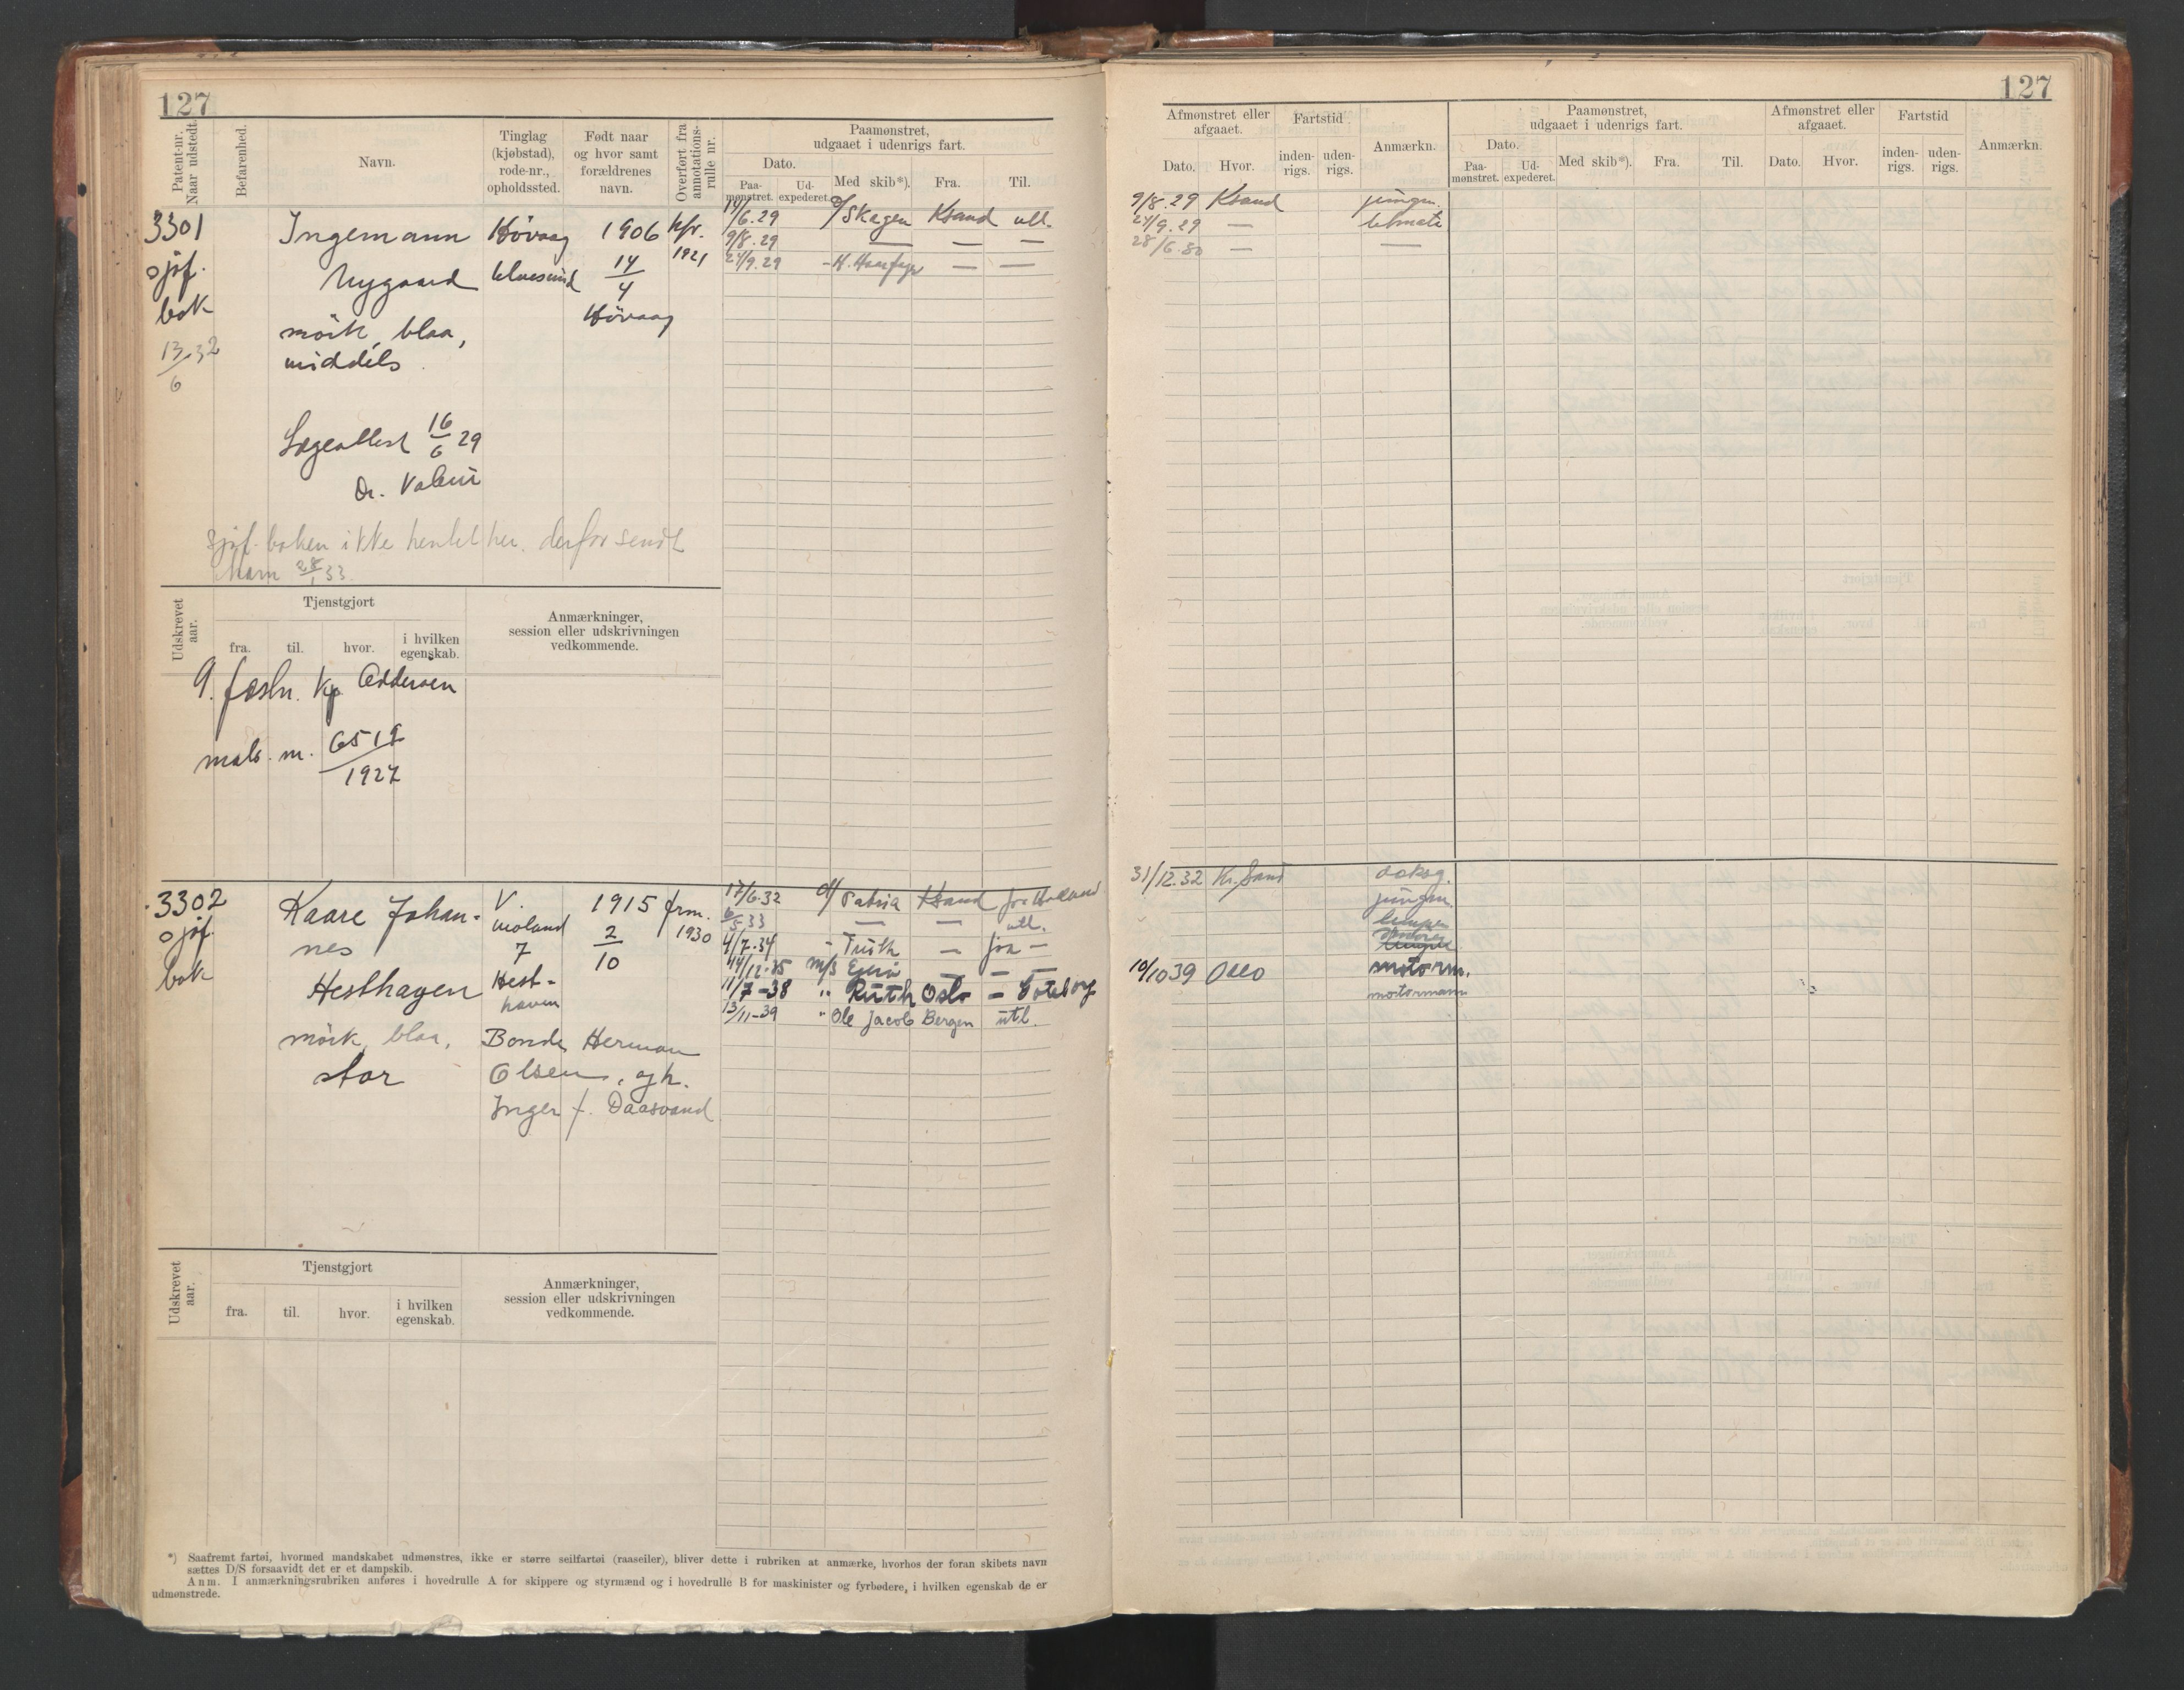 127
Patent-nr.
Naar udstedt.
Befarenhed.
Navn.
Tinglag
(kjøbstad),
rode-nr.,
opholdssted.
Født naar
og hvor samt
forældrenes
navn.
Overført fra
annotations-
rulle nr.
Paamønstret,
udgaaet i udenrigs fart.
Dato.
Paa-
mønstret.
Ud-
expederet.
Med skib*).
Fra.
Til.
3301
sjöf.
bok
13/6 32
Ingemann
Nygaard
mörk, blaa,
middels
Hövaag
1906
14/4
Hövaag
hfr.
1921
Lægeattest 16/6 29
Dr.
sjöf. boken ikke hentet her. derfor sendt
ham 28/1 33.
14/6.29 Skagen Ksand utl.
9/8.29 — — —
24/9.29 — —
Udskrevet
aar.
Tjenstgjort
fra.
til.
hvor.
i hvilken
egenskab.
Anmærkninger,
session eller udskrivningen
vedkommende.
9. Kp Odderøen
m. 6519/1927
3302
sjöf.
bok
Kaare Johan-
nes
Hesthagen
mörk, blaa,
stor
V.
moland
7
Hest-
haven
1915
2/10
frm.
1930
Bonde Herman
Olsen, og h.
Inger f. Daasvand
17/6.32 Patria Ksand for Holland
6/5 33 — — utl.
4/7.34 — fra —
14/12-35 M/S — — —
11/7-38 " Ruth Oslo — Göteborg
13/11-39 " Ole Jacob Bergen utl.
Udskrevet
aar.
Tjenstgjort
fra.
til.
hvor.
i hvilken
egenskab.
Anmærkninger,
session eller udskrivningen
vedkommende.
*) Saafremt fartøi, hvormed mandskabet udmønstres, ikke er større seilfartøi (raaseiler), bliver dette i rubriken at anmærke, hvorhos der foran skibets navn
sættes D/S forsaavidt det er et dampskib.
Anm. I anmærkningsrubriken anføres i hovedrulle A for skippere og styrmænd og i hovedrulle B for maskinister og fyrbødere, i hvilken egenskab de er
udmønstrede.
127
Afmønstret eller
afgaaet.
Dato.
Hvor.
Fartstid
inden-
rigs.
uden-
rigs.
Anmærkn.
Paamønstret,
udgaaet i udenrigs fart.
Dato.
Paa-
mønstret.
Ud-
expederet.
Med skib*).
Fra.
Til.
Afmønstret eller
afgaaet.
Dato.
Hvor.
Fartstid
inden-
rigs.
uden-
rigs.
Anmærkn.
9/8.29 Ksand jungm.
24/9.29 — letmatr
28/6.30 — —
31/12.32 Kr.Sand
jungm.
lemper
10/10 39 Oslo motorm.
motormann